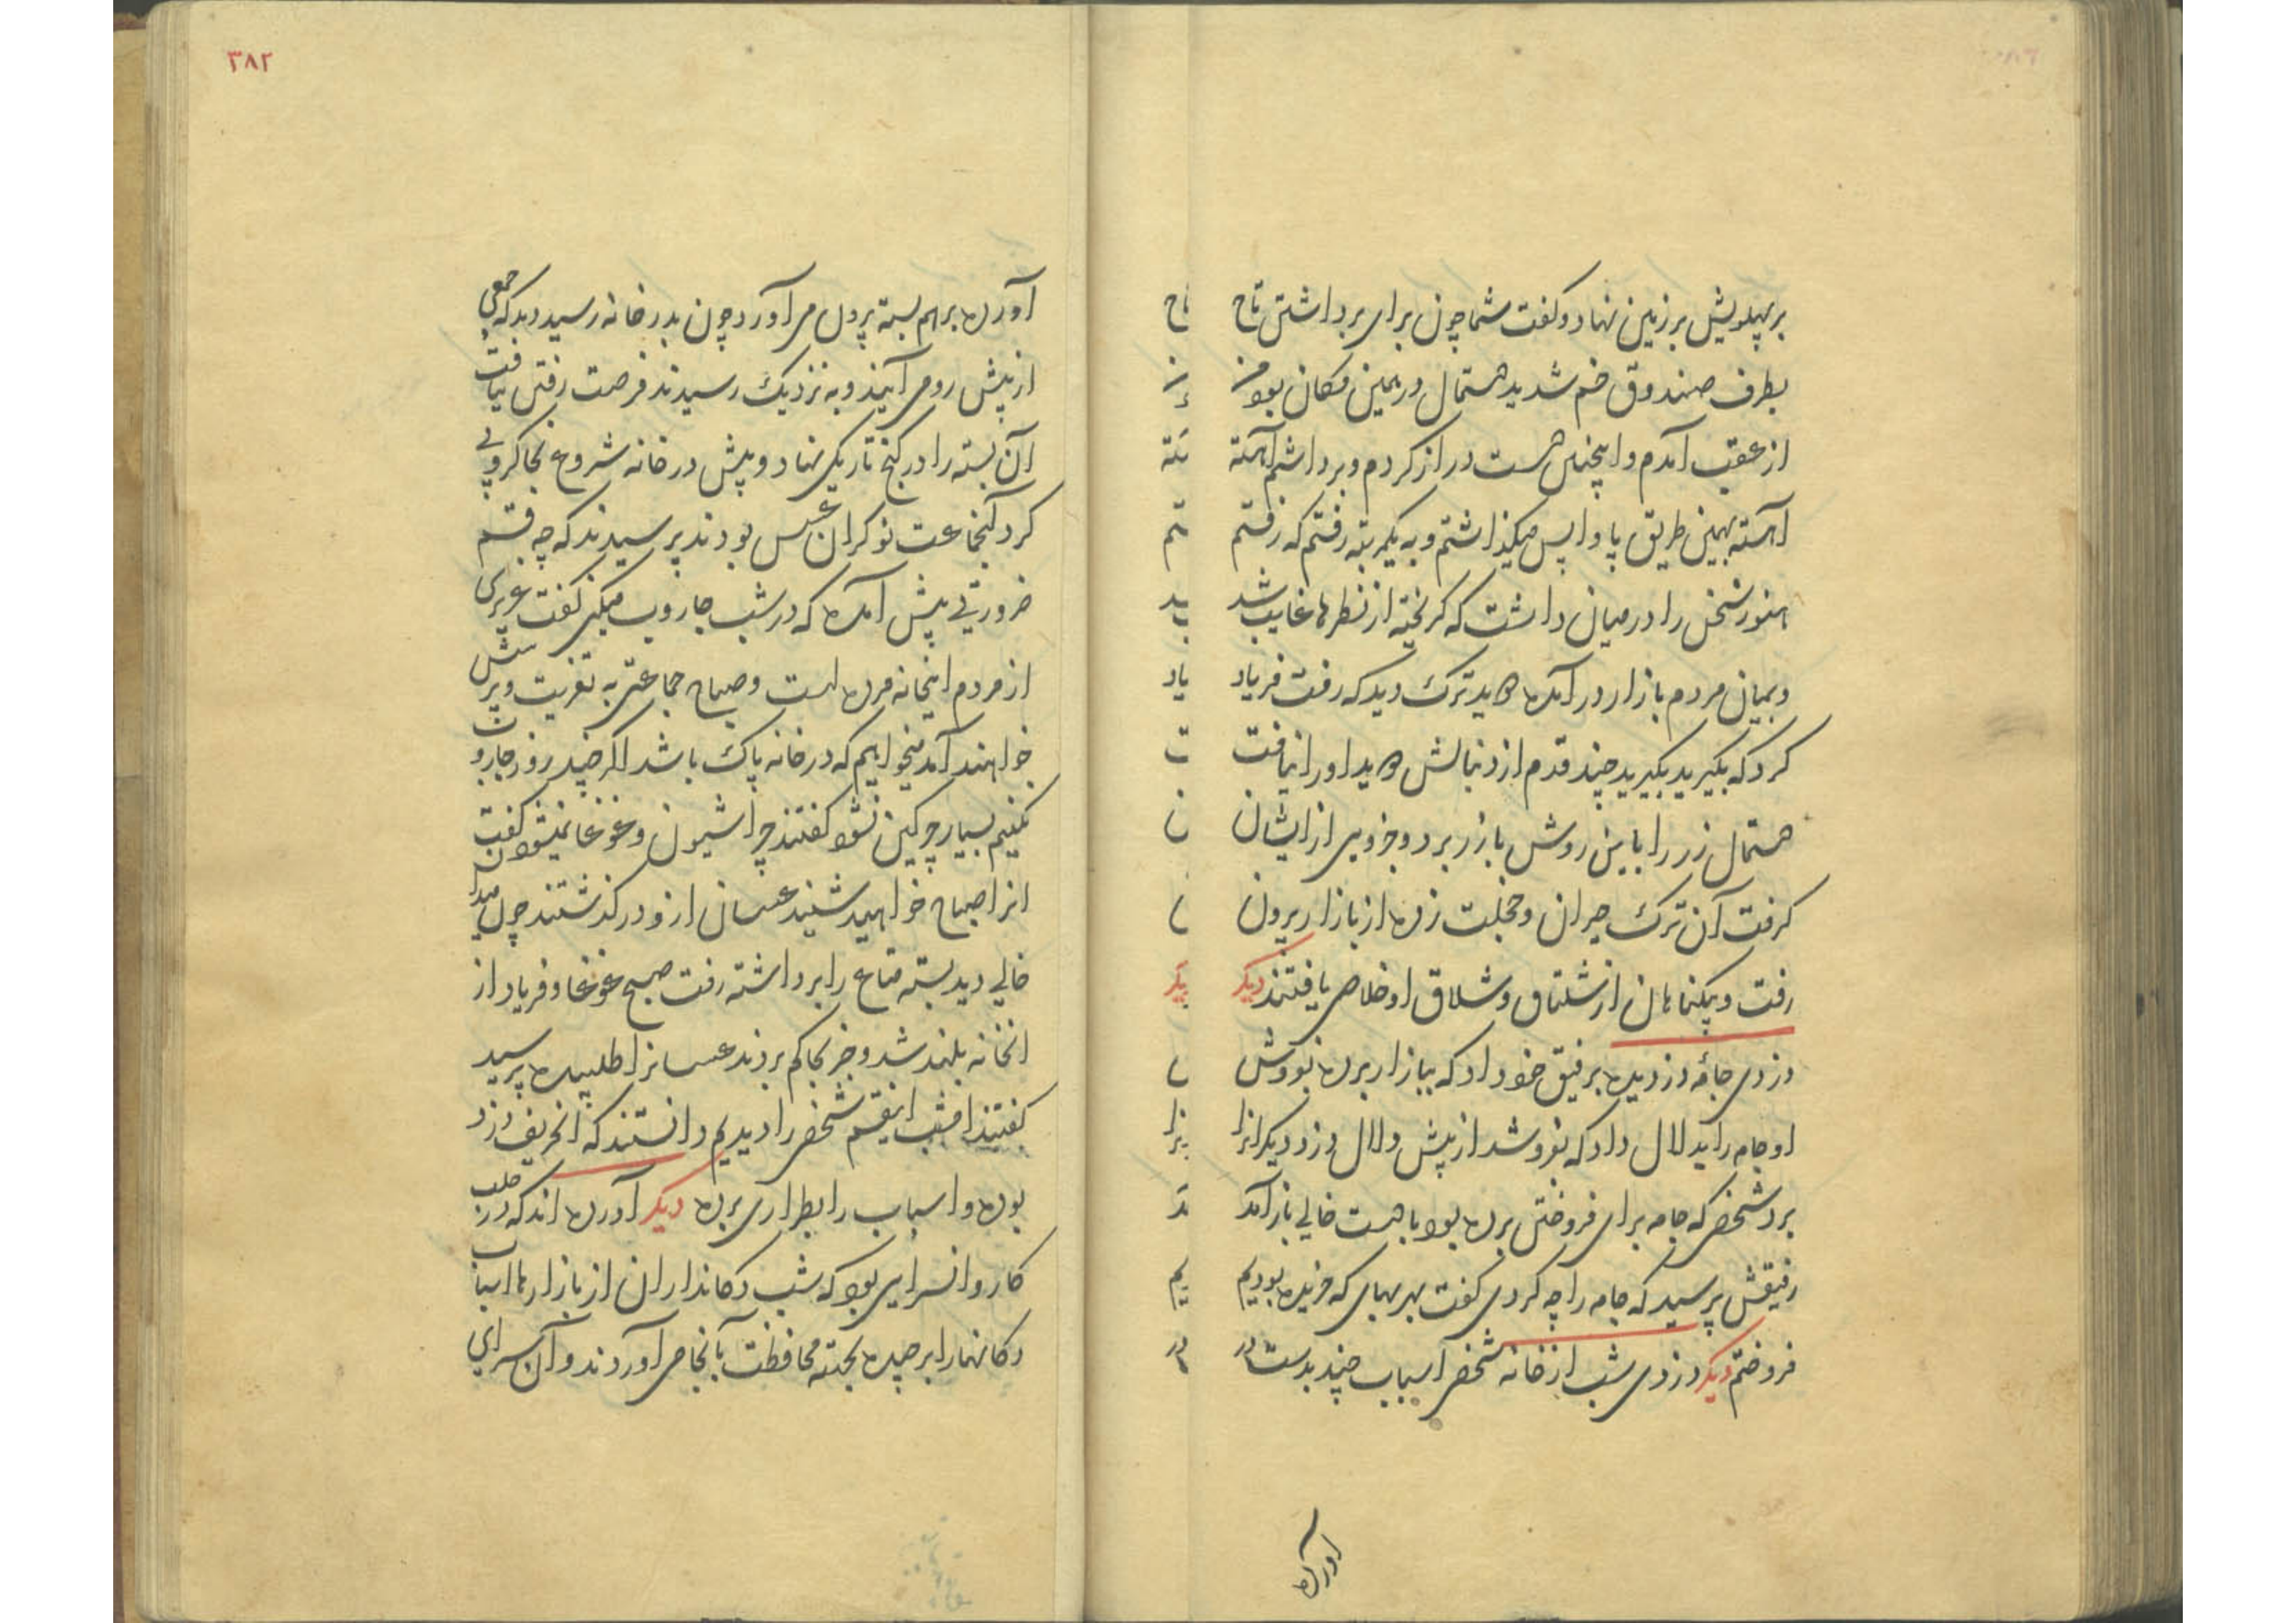 بر پهلویش بر زمین نهاد و کفت شما چون برای برداشتن تاج
بطرف صندوق خم شدید دستمال در همین مکان بود من
از عقب آمدم و اینچنین دست دراز کردم و برداشتم آهسته
آهسته بهمین طریق پا واپس میکذاشتم و به یکمرتبه رفتم که رفتم
هنوز سخن را در میان داشت که کریخته از نظرها غایب شد
و بمیان مردم بازار در آمده دوید ترک دید که رفت فریاد
کرد که بکیرید بکیرید چند قدم از دنبالش دوید او را نیافت
دستمال زر را باین روش بازر برد و جزویی از ایشان
کرفت آن ترک حیران و خجلت زده از بازار بیرون
رفت و بیکناهان از شلتاق و شلاق او خلاص یافتند دیکر
دزدی جامه دزدیده برفیق خود داد که ببازار برده بفروش
او جامه را بدلال داد که بفروشد از پیش دلال دزد دیکر آنرا
برد شخصی که جامه برای فروختن برده بود با دست خالی باز آمد
رفیقش پرسید که جامه را چه کردی کفت بهر بهای که خریده بودیم
فروختم دیکر دزدی شب از خانه شخصی اسباب چند بدست در
آورده
٣٨٢
آورده برهم بسته بیرون می آورد چون بدر خانه رسید دید که جمعی
از پیش رو می آیند و به نزدیک رسیدند فرصت رفتن نیافت
آن بسته را در کنج تاریکی نهاد و پیش در خانه شروع بجاکروبی
کرد آنجماعت نوکران عسس بودند پرسیدند که چه قسم
ضرورتی پیش آمده که در شب جاروب میکنی کفت عزیزی
از مردم اینخانه مرده است و صباح جماعتی به تعزیت و پرسش
خواهند آمد میخواهیم که در خانه پاک باشد اکر چند روز جاروب
نکنیم بسیار چرکین نشود کفتند چرا شیون و غوغا نمیشود کفت
انرا صباح خواهید شنید عسسان ازو در کذشتند چون میدان
خالی دید بسته متاع را برداشته رفت صبح غوغا و فریاد از
انخانه بلند شد و خبر بحاکم بردند عسسانرا طلبیده پرسید
کفتند امشب اینقسم شخصی را دیدیم دانستند که انحریف دزد
بوده و اسباب را بطراری برده دیکر آورده اند که در حلب
کاروانسرایی بود که شب دکانداران از بازارها اسباب
دکانها را برچیده بجهته محافظت بآنجا می آوردند و آن سرای